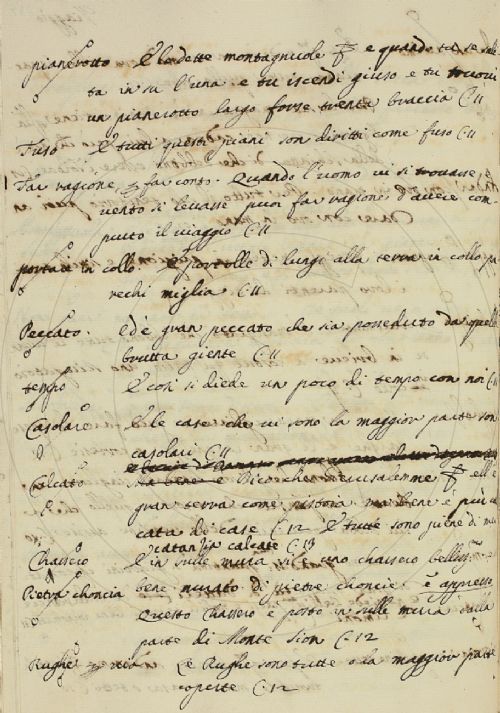 pianerotto E lo dette montagnuole e quando tu se sali
ta in su l'una e tu iscendi giuso e tu truovi
un pianerotto largo forse trenta braccia C. 11
Fuso E tutti questi piani son diritti come fuso C 11
Far ragione, far conto. Quando l'uomo vi si trovasse,
vento si levasse puoi far ragione d'avere com
piuto il viaggio C. 11
portare in collo. E portolle di lungi alla terra in collo pa
rechi miglia C. 11
Peccato. ed è gran peccato che sia posseduto da quell
brutta giente C. 11
tempo E così si diede un poco di tempo con noi C 11
Casolare E le case che vi sono la maggior parte son
casolari C. 11
Calcato Ma bene è Dico che Gerusalemme ell'è
gran terra come pistoia ma bene è più
cata di case C. 12 E tutte sono piene di mu
catan in calcate C. 13
Chassero E in sulle mura si è uno chassero bellissmo
Pietra choncia bene murato di pietre choncie. è appresso
Questo Chassero è posto in sulle mura dalla
parte di Monte Sion C. 12
Rughe via Le Rughe sono tutte o la maggior parte
coperte C. 12